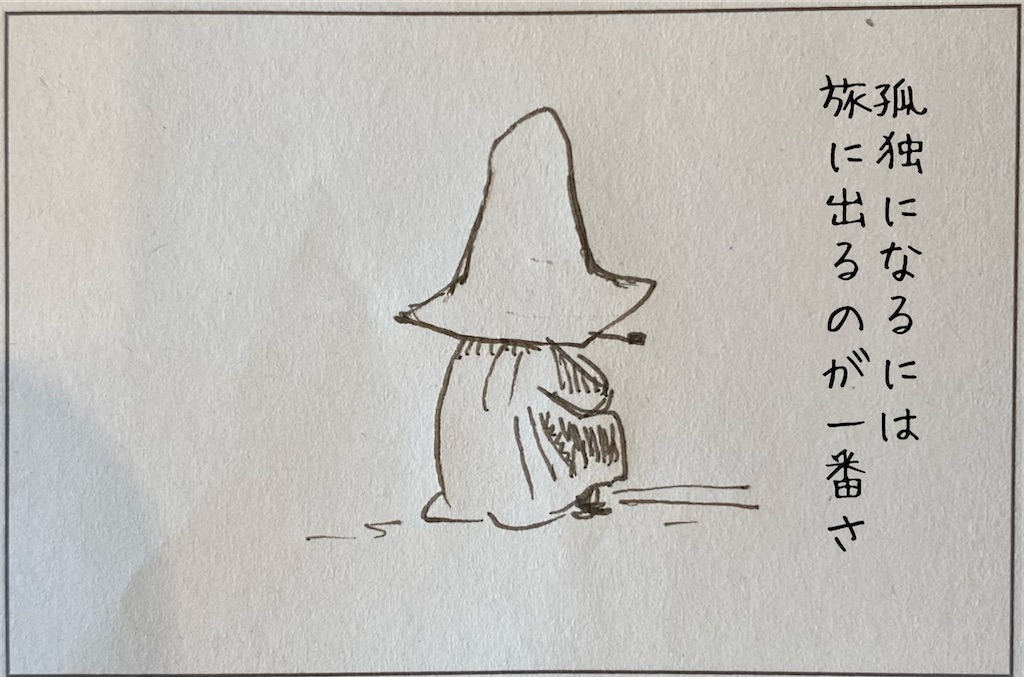 孤独になるには
旅に出るのが一番さ